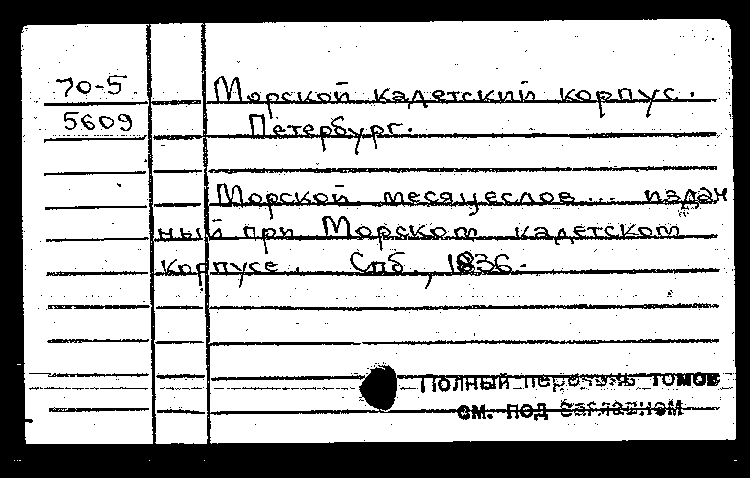 70-5
5609
Морской кадетский корпус.
Петербург.
Морской месяцеслов... издан
ный при Морском кадетском
корпусе. Спб., 1836.-
Полный перечень томов
см. под заглавием